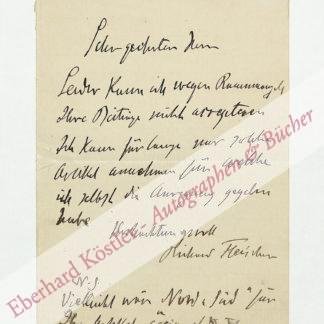 Sehr geehrter Herr
Leider kann ich wegen Raummangels
Ihre Beiträge nicht acceptieren
Ich kann für lange nur solche
Artikel annehmen für welche
ich selbst die Anregung gegeben
habe
Hochachtungsvoll
Richard Fleischer
N.S.
Vielleicht wäre "Nord u. Süd" für
Eberhard Köstler - Autographen & Bücher